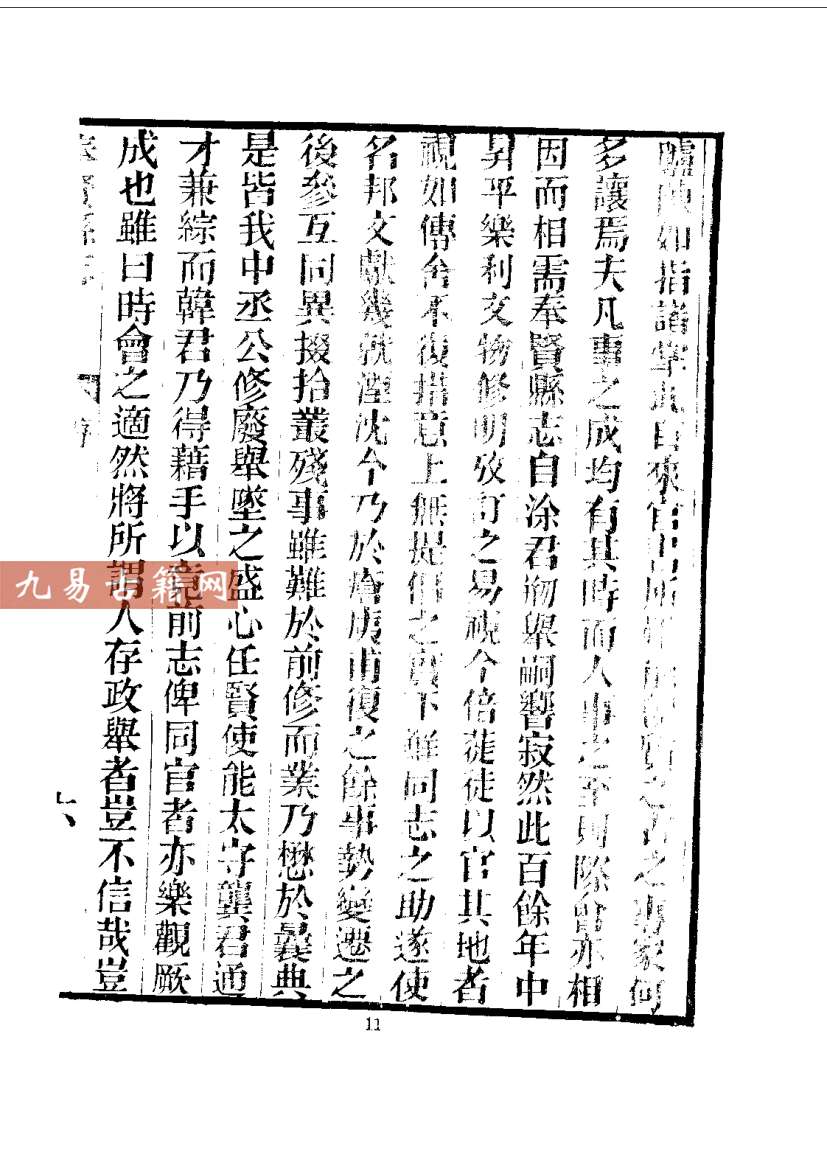 臚陳如指諸掌
多讓焉夫凡事之成均有其時而人事之至則際會亦相
因而相需奉賢縣志自涂君剏舉嗣響寂然此百餘年中
昇平樂利文物修明攷訂之易視今倍蓰徒以官其地者
視如傳舍不復措意上無提倡之下鮮同志之助遂使
名邦文獻幾就湮沈今乃於瘡痍甫復之餘事勢變遷之
後參互同異掇拾叢殘事雖難於前修而業乃懋於曩典
是皆我中丞公修廢舉墜之盛心任賢使能太守龔君通
才兼綜而韓君乃得藉手以竟前志俾同官者亦樂觀厥
成也雖曰時會之適然將所謂人存政舉者豈不信哉豈
奉賢縣志 序 六
九易古籍网
11